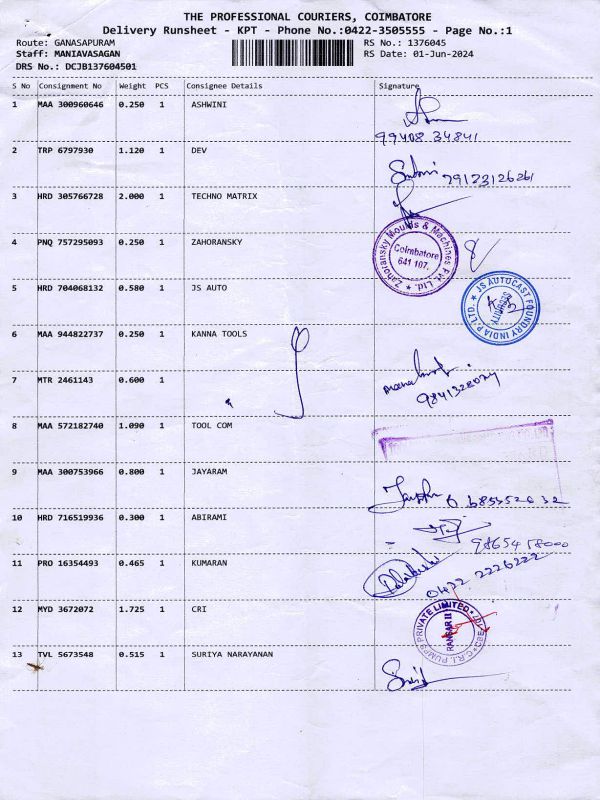 THE PROFESSIONAL COURIERS, COIMBATORE
Delivery Runsheet - KPT - Phone No.:0422-3505555 - Page No.:1
Route: GANASAPURAM RS No.: 1376045
Staff: MANIAVASAGAN RS Date: 01-Jun-2024
DRS No.: DCJB137604501
S No Consignment No Weight PCS Consignee Details Signature
1 MAA 300960646 0.250 1 ASHWINI
99408 34841
2 TRP 6797930 1.120 1 DEV
3 HRD 305766728 2.000 1 TECHNO MATRIX
4 PNQ 757295093 0.250 1 ZAHORANSKY
Zahoransky Moulds & Machines Pvt. Ltd.
Coimbatore
641 107.
5 HRD 704068132 0.580 1 JS AUTO
JS AUTOCAST FOUNDRY INDIA P. LTD.
6 MAA 944822737 0.250 1 KANNA TOOLS
7 MTR 2461143 0.600 1
8 MAA 572182740 1.090 1 TOOL COM
9 MAA 300753966 0.800 1 JAYARAM
10 HRD 716519936 0.300 1 ABIRAMI
11 PRO 16354493 0.465 1 KUMARAN
0422 2226222
12 MYD 3672072 1.725 1 CRI
C.R.I. PUMPS PRIVATE LIMITED
13 TVL 5673548 0.515 1 SURIYA NARAYANAN